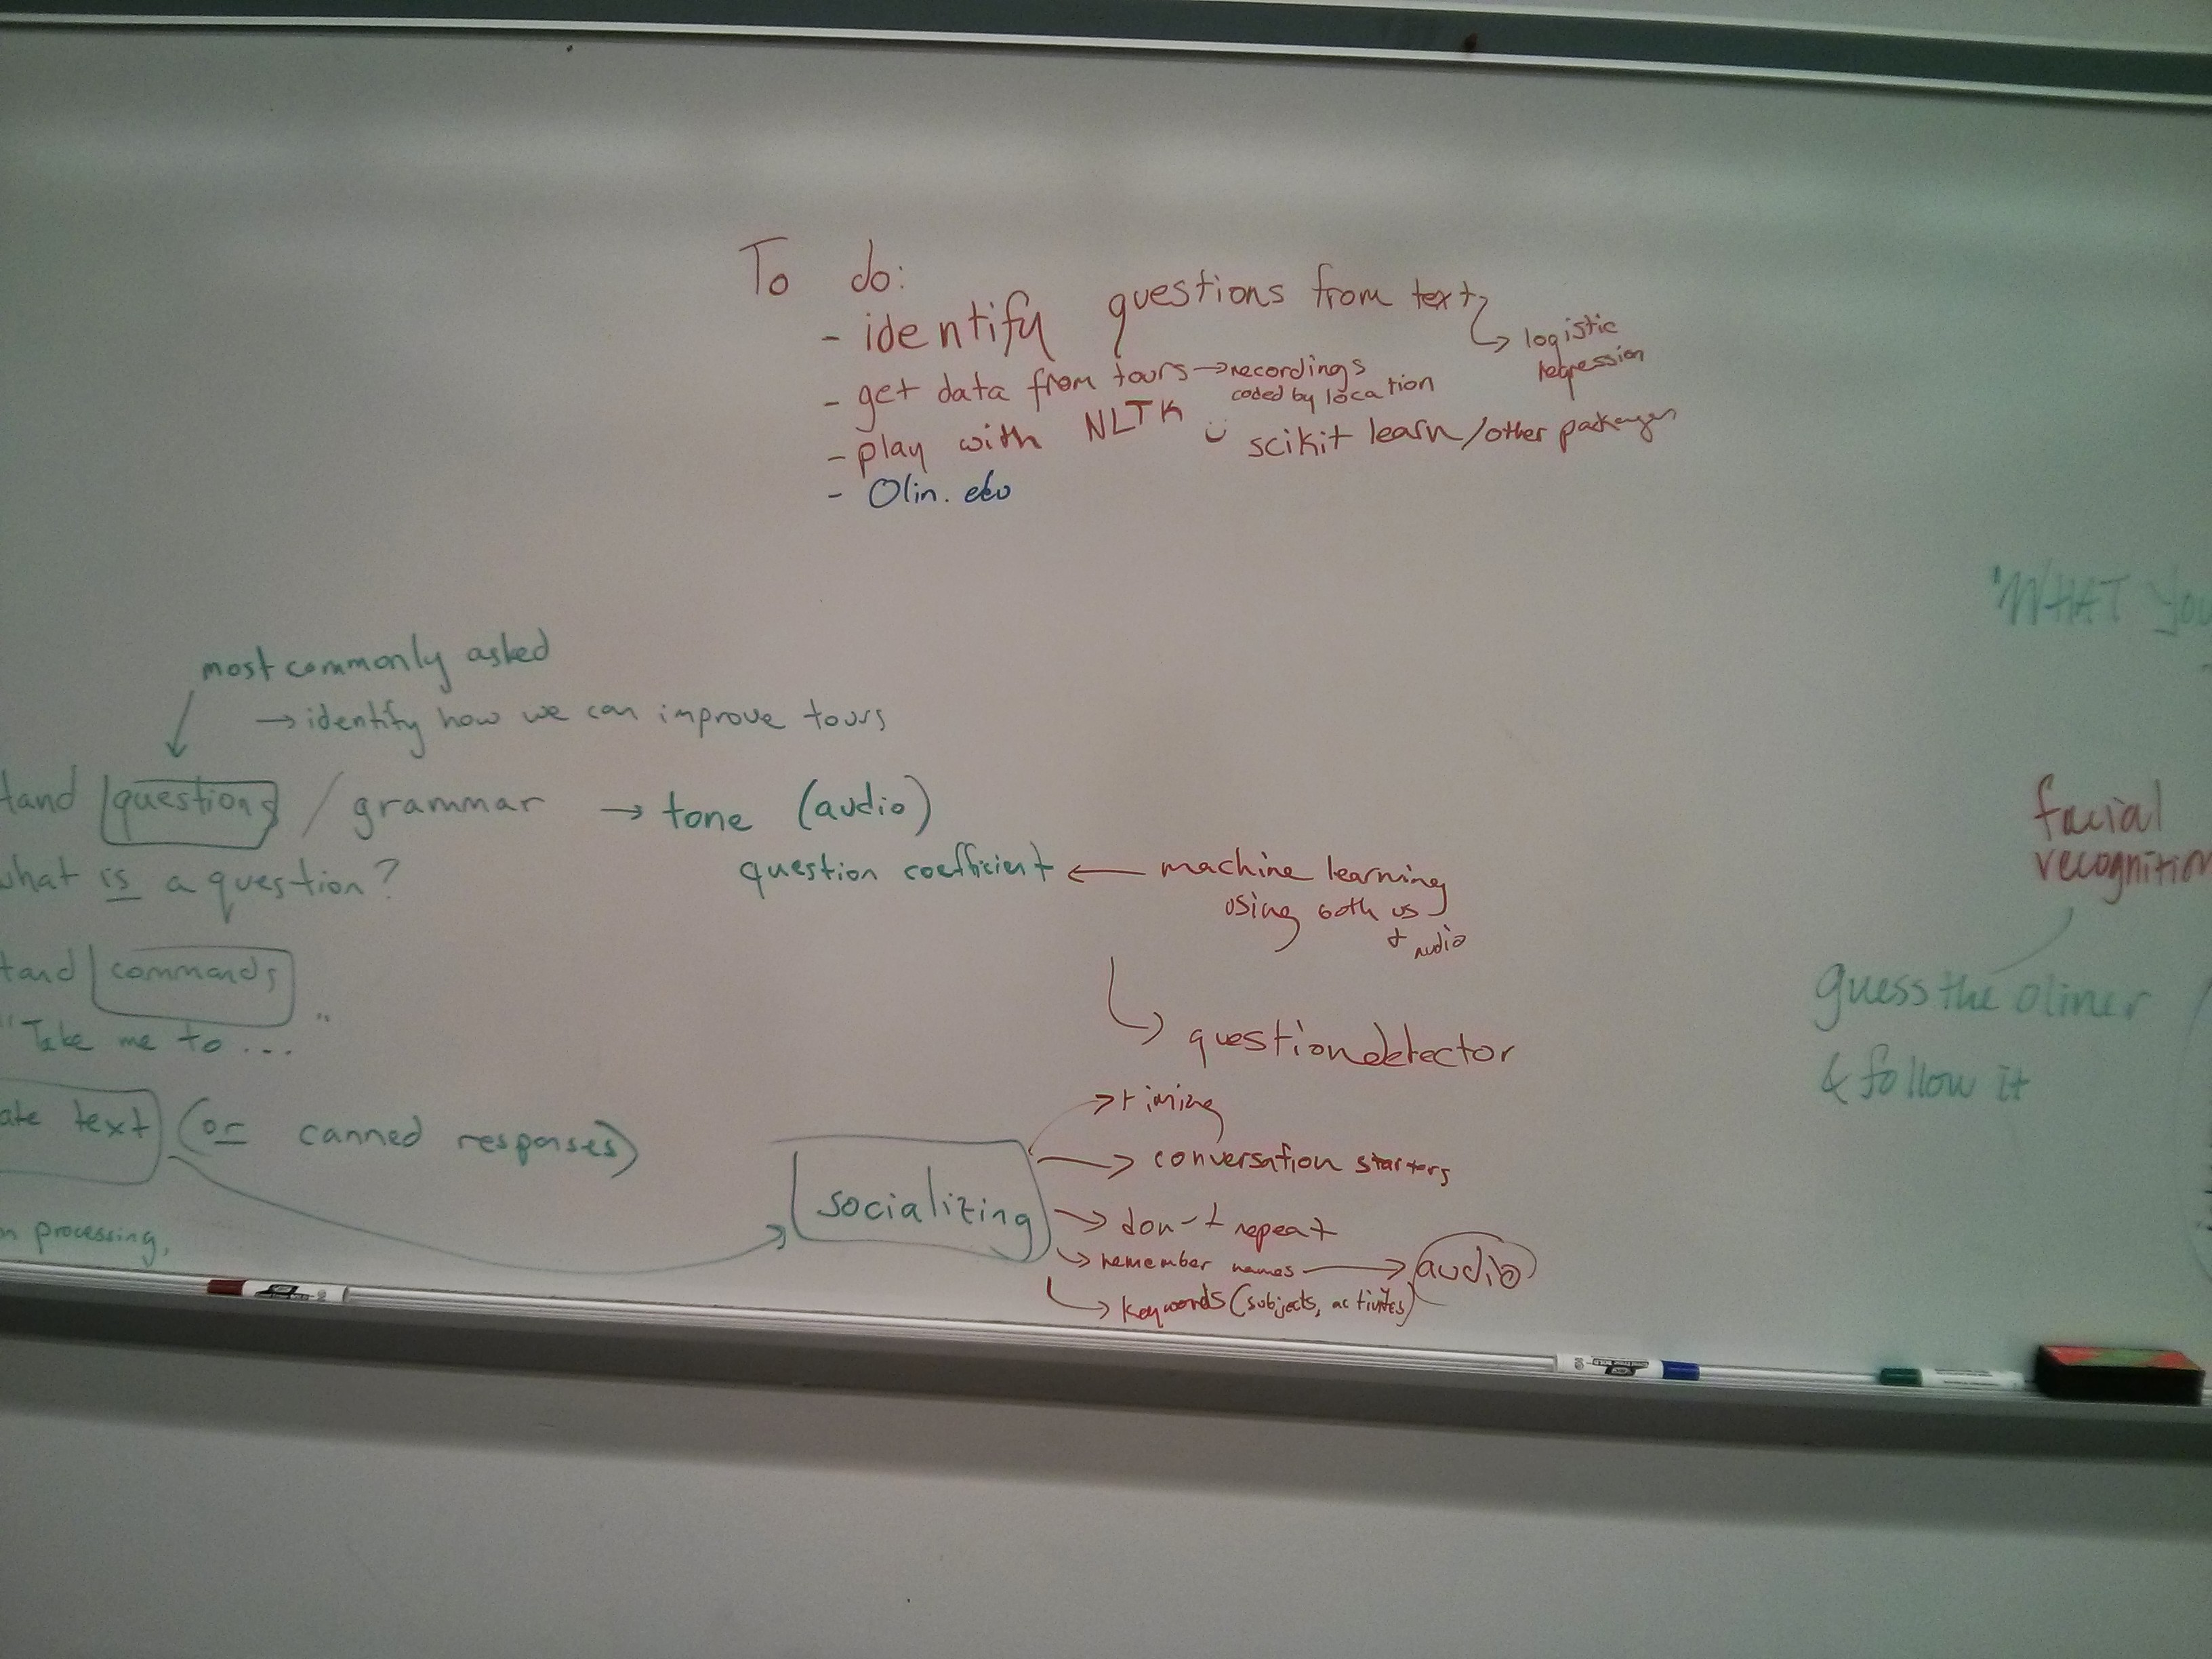 To do:
- identify questions from text
logistic
regression
- get data from tours → recordings
coded by location
- play with NLTK
scikit learn/other packages
- Olin.edu
most commonly asked
→ identify how we can improve tours
tand questions / grammar → tone (audio)
question coefficient ← machine learning
using both us
+ audio
what is a question?
tand commands
"Take me to ..."
→ question detector
ate text (or canned responses)
n processing,
socializing
→ timing
→ conversation starters
→ don't repeat
→ remember names → audio
→ keywords (subjects, activites)
"WHAT you
facial
recognition
guess the oliner
& follow it